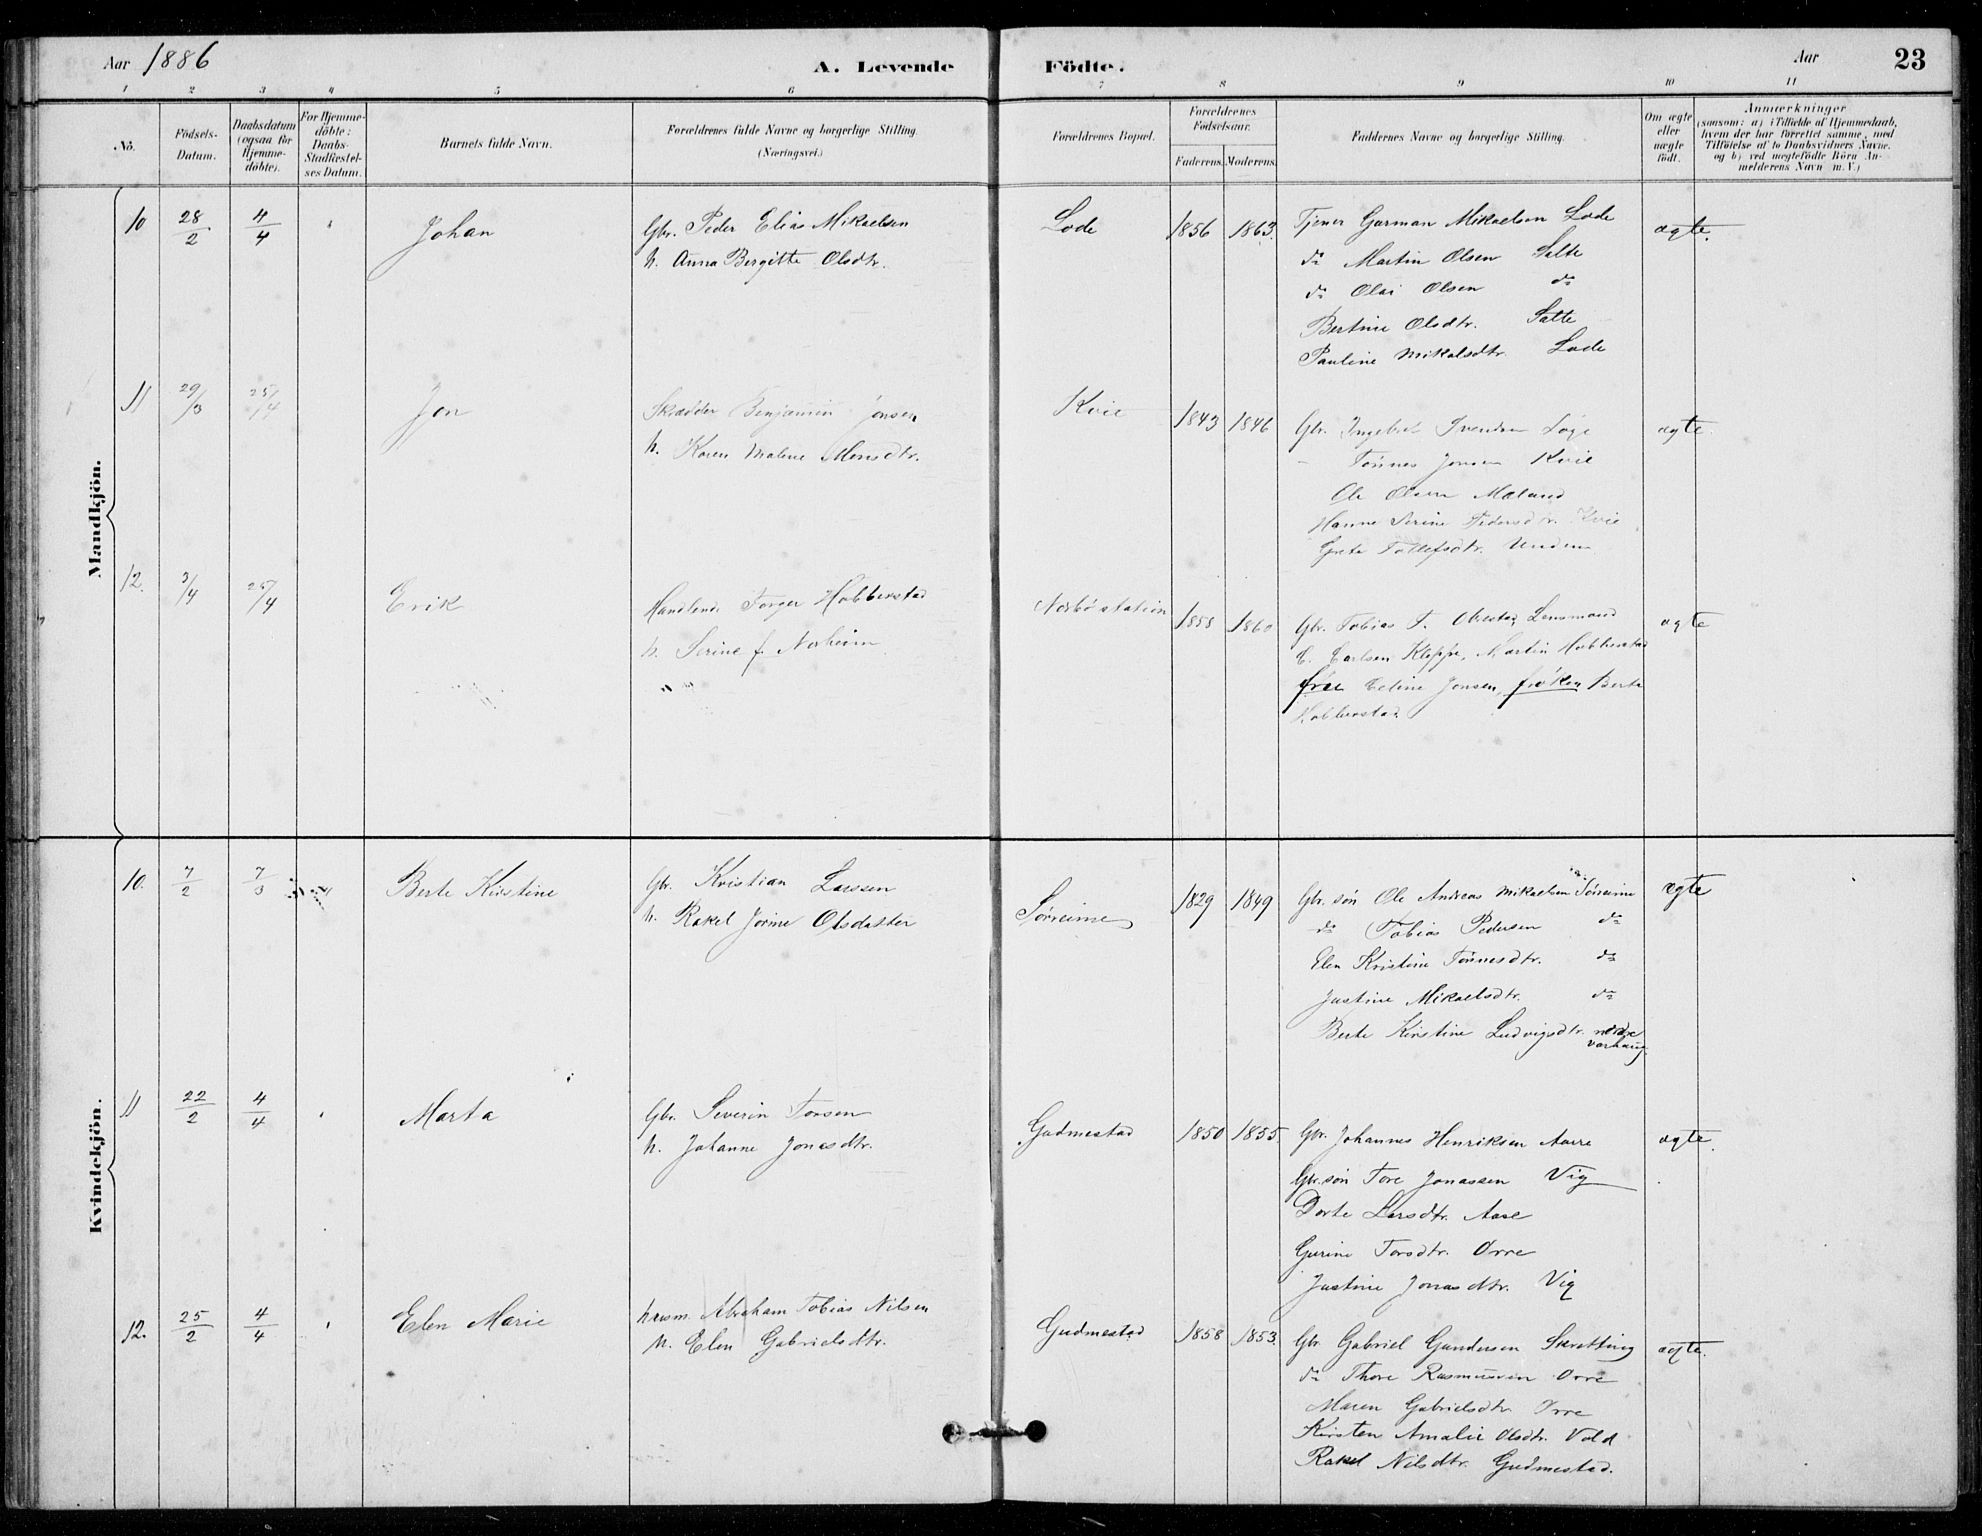 Aar 1886
A. Levende Födte.
Aar
23
1 2 3 4 5 6 7 8 9 10 11
No.
Födsels-
Datum.
Daabsdatum
(ogsaa for
Hjemme-
döbte).
For Hjemme-
döbte:
Daabs-
Stadfæstel-
ses Datum.
Barnets fulde Navn.
Forældrenes fulde Navne og borgerlige Stilling.
(Næringsvei.)
Forældrenes Bopæl.
Forældrenes
Födselsaar.
Faderens. Moderens.
Faddernes Navne og borgerlige Stilling.
Om ægte
eller
uægte
födt.
Anmærkninger
(saasom: a) i Tilfælde af Hjemmedaab,
hvem der har forrettet samme, med
Tilföielse af to Daabsvidners Navne,
og b) ved uegtefödte Börn An-
melderens Navn m. V.)
Mandkjön.
10 28/2 4/4 Johan
Gbr. Peder Elias Mikaelsen
h. Anna Bergitte Olsdtr.
Lode 1856 1863.
Tjener Garman Mikaelsen Lode
do Martin Olsen Salte
do Olai Olsen do
Bertine Olsdtr. Salte
Pauline Mikalsdtr. Lode
ægte.
11 29/3 25/4 Jon
Skrædder Benjamin Jonsen
h. Karen Malene Monsdtr.
Kvie 1843 1846
Gbr. Ingebret Svendsen Løge
– Tönnes Jonsen Kvie
Ole Olsen Mæland
Hanne Serine Pedersdtr. Kvie
Grete Tollefsdtr. Undem
ægte.
12. 3/4 25/4 Erik
Handlende Torger Hobberstad
h. Serine f. Norheim
Nærbö station 1858 1860
Gbr. Tobias T. Obrestad, Lensmand
C. Carlsen Kleppe, Martin Hobberstad
frue Celine Jonsen, frøken Berte
Hobberstad.
ægte
Kvindekjön.
10. 7/2 7/3 Berte Kirstine
Gbr. Kristian Larssen
h. Rakel Jorine Olsdatter
Sørreime 1829 1849
Gbr. søn Ole Andreas Mikaelsen Sörreime
do Tobias Pedersen do
Elen Kristine Tönnesdtr. do
Justine Mikaelsdtr. do
Berte Kirstine Ludvigsdtr. nordre
varhaug.
ægte
11 22/2 4/4 Marta
Gbr. Severin Torsen
h. Johanne Jonasdtr.
Gudmestad 1850 1855.
Gbr. Johannes Henriksen Aarre
Gbr. søn Tore Jonassen Vig
Dorte Larsdtr. Aase
Gurine Torsdtr. Orre
Justine Jonasdtr. Vig
ægte.
12. 25/2 4/4 Elen Marie
husm. Abraham Tobias Nilsen
h. Elen Gabrielsdtr.
Gudmestad 1858 1853.
Gbr. Gabriel Gundersen Skretting
do Thore Rasmussen Orre
Maren Gabrielsdtr. Orre
Kirsten Amalie Olsdtr. Vold
Rakel Nilsdtr. Gudmestad.
ægte.